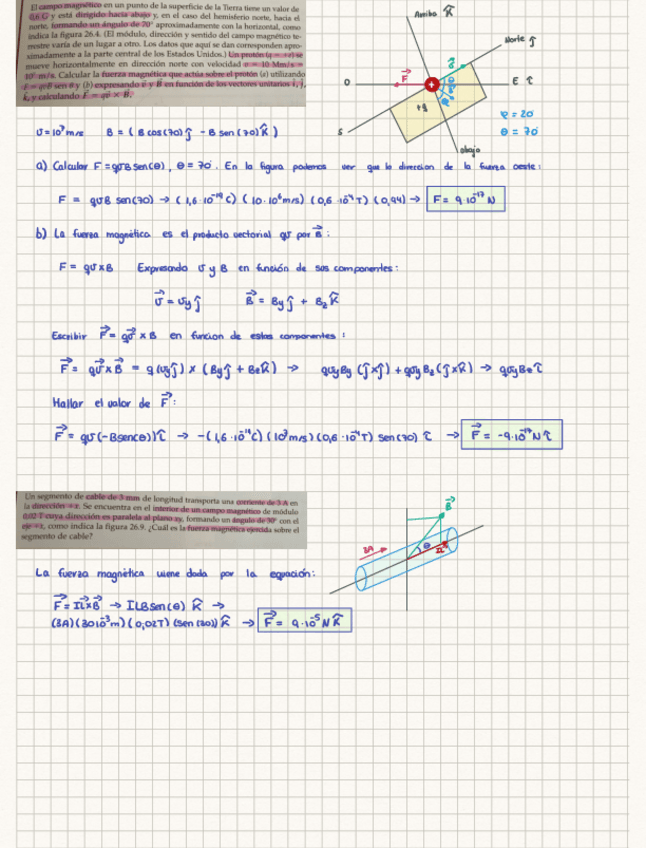 El campo magnético en un punto de la superficie de la Tierra tiene un valor de
0,6 G y está dirigido hacia abajo y, en el caso del hemisferio norte, hacia el
norte, formando un ángulo de 70° aproximadamente con la horizontal, como
indica la figura 26.4. (El módulo, dirección y sentido del campo magnético te-
rrestre varía de un lugar a otro. Los datos que aquí se dan corresponden apro-
ximadamente a la parte central de los Estados Unidos.) Un protón (q = +e) se
mueve horizontalmente en dirección norte con velocidad v = 10 Mm/s =
10⁷ m/s. Calcular la fuerza magnética que actúa sobre el protón (a) utilizando
F = qvB sen θ y (b) expresando v⃗ y B⃗ en función de los vectores unitarios i, j,
k, y calculando F⃗ = qv⃗ × B⃗.
Arriba k̂
Norte ĵ
O
F⃗
+
E î
S
+q
abajo
θ = 70
U = 10⁷ m/s B = (B cos(70) ĵ - B sen (70) k̂)
a) Calcular F = qυB sen(θ), θ = 70. En la figura podemos ver que la direccion de la fuerza oeste:
F = qυB sen(70) → (1,6 · 10⁻¹⁹ C) (10 · 10⁶ m/s) (0,6 · 10⁻⁴ T) (0,94) → F = 9 · 10⁻¹⁷ N
b) La fuerza magnética es el producto vectorial qυ por B⃗:
F = qυ × B Expresando υ y B en función de sus componentes:
υ⃗ = υy ĵ B⃗ = By ĵ + Bz k̂
Escribir F⃗ = qυ⃗ × B en funcion de estas componentes:
F⃗ = qυ⃗ × B⃗ = q (υy ĵ) × (By ĵ + Bz k̂) → qυy By (ĵ × ĵ) + qυy Bz (ĵ × k̂) → qυy Bz î
Hallar el valor de F⃗:
F⃗ = qυ (-B sen θ) î → -(1,6 · 10⁻¹⁹ C) (10⁷ m/s) (0,6 · 10⁻⁴ T) sen (70) î → F⃗ = -9 · 10⁻¹⁷ N î
Un segmento de cable de 3 mm de longitud transporta una corriente de 3 A en
la dirección +x. Se encuentra en el interior de un campo magnético de módulo
0,02 T cuya dirección es paralela al plano xy, formando un ángulo de 30° con el
eje +x, como indica la figura 26.9. ¿Cuál es la fuerza magnética ejercida sobre el
segmento de cable?
B⃗
3A
θ
La fuerza magnética viene dada por la equación:
F⃗ = I L⃗ × B⃗ → I L B sen (θ) k̂ →
(3A) (3·10⁻³ m) (0,02T) (sen (30)) k̂ → F⃗ = 9 · 10⁻⁵ N k̂